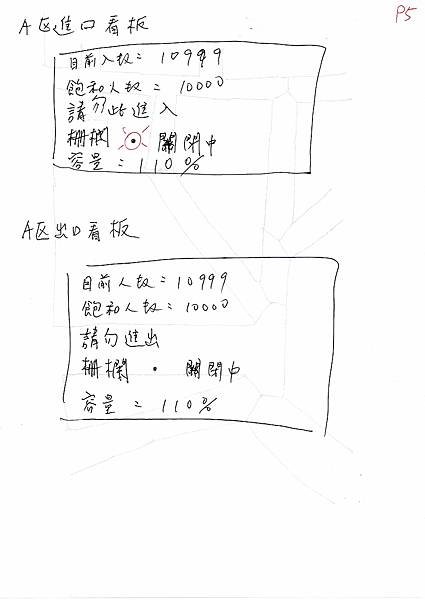 P5
A区進口看板
目前人数 = 10999
飽和人数 = 10000
請勿此進入
柵欄 關閉中
容量 = 110%
A区出口看板
目前人数 = 10999
飽和人数 = 10000
請勿進出
柵欄 · 關閉中
容量 = 110%